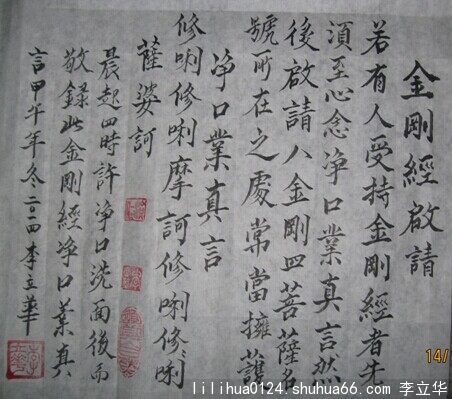 金剛經啟請
若有人受持金剛經者先
須至心念淨口業真言然
後啟請八金剛四菩薩名
號所在之處常當擁護
淨口業真言
修唎修唎摩訶修唎修修唎
薩婆訶
晨起四時許淨口洗面後而
敬錄此金剛經淨口業真
言甲午年冬二〇一四李立華
14/
lilihua0124.shuhua66.com 李立华